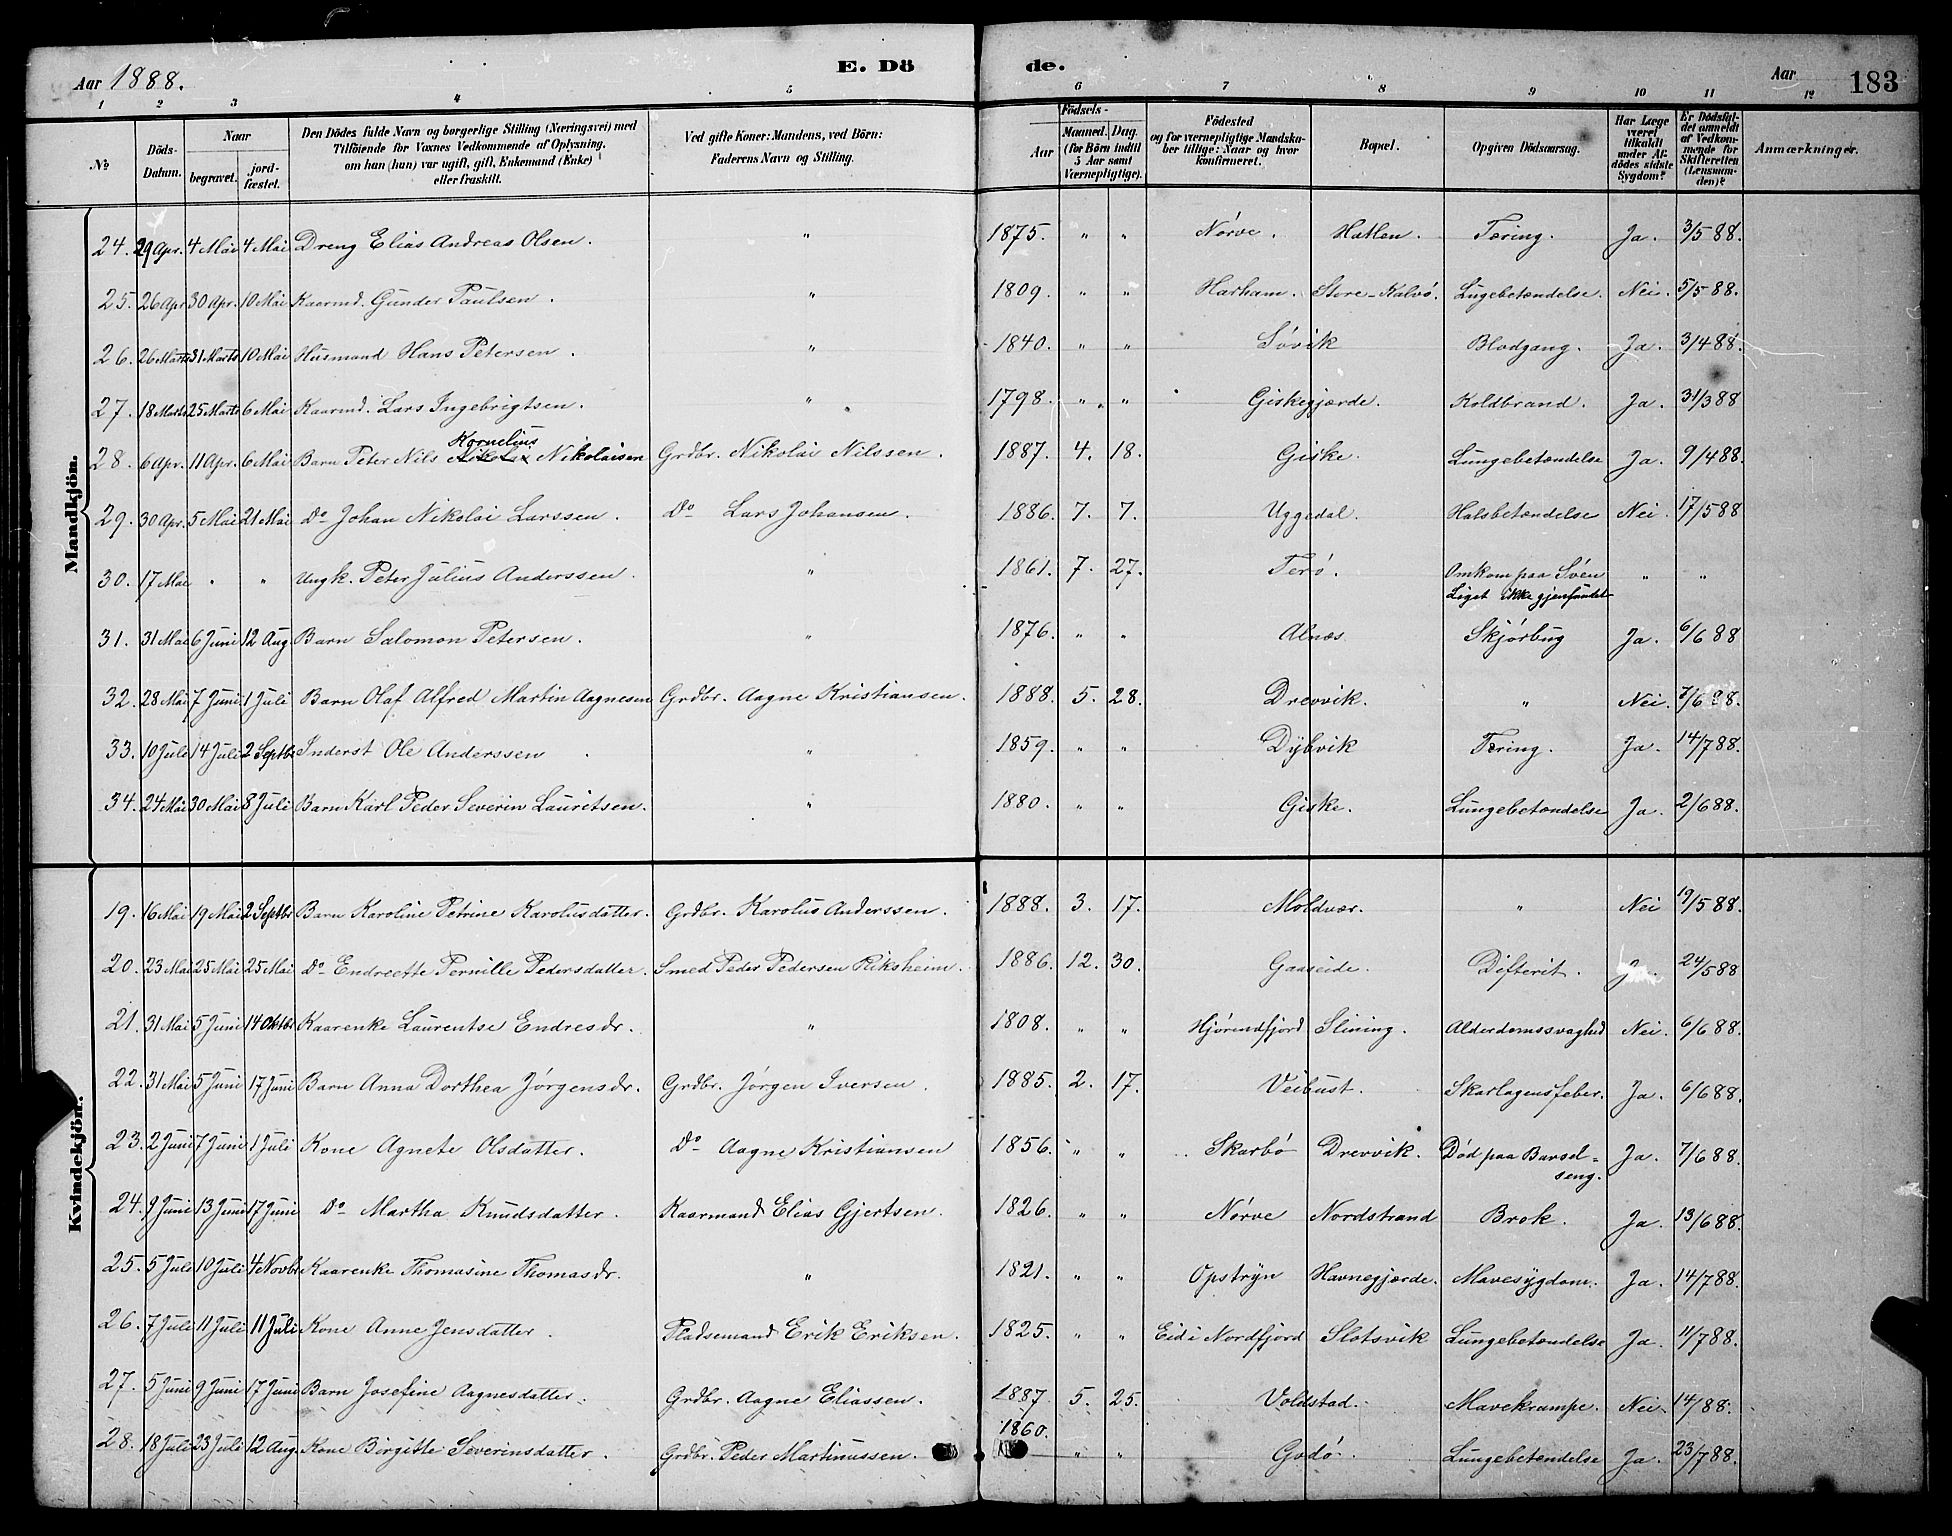 Aar 1888. E. Dö de. Aar 183
1 2 3 4 5 6 7 8 9 10 11 12
No Döds-Datum. Naar begravet. jord-fæstet. Den Dödes fulde Navn og borgerlige Stilling (Næringsvei) med Tilföiende for Voxnes Vedkommende af Oplysning, om han (hun) var ugift, gift, Enkemand (Enke) eller fraskilt. Ved gifte Koner: Mandens, ved Börn: Faderens Navn og Stilling. Födsels- Aar Maaned. Dag. (for Börn indtil 5 Aar samt Værnepligtige). Födested og for værnepligtige Mandskaber tillige: Naar og hvor konfirmeret. Bopæl. Opgiven Dödsaarsag. Har Læge været tilkaldt under Afdödes sidste Sygdom? Er Dödsfaldet anmeldt af Vedkommende for Skifteretten (Lensmanden)? Anmærkninger.
Mandkjön.
24. 29 Apr. 4 Mai 4 Mai Dreng Elias Andreas Olsen. " 1875. " " Nørve. Hatlen. Tæring. Ja. 3/5 88.
25. 26 Apr 30 Apr. 10 Mai Kaarmd. Gunder Paulsen. " 1809. " " Harham. Store-Kalvø. Lugebetændelse. Nei. 5/5 88.
26. 26 Marts 31 Marts 10 Mai Husmand Hans Petersen. " 1840. " " Søvik Blodgang. Ja. 3/4 88.
27. 18 Marts 25 Marts 6 Mai Kaarmd. Lars Ingebrigtsen. " 1798. " " Giskegjærde. Koldbrand. Ja. 31/3 88
Kornelius
28. 6 Apr. 11 Apr. 6 Mai Barn Peter Nils Nikolai Nikolaisen Grdbr. Nikolai Nilssen. 1887. 4. 18. Giske. Lungebetændelse Ja. 9/4 88.
29. 30 Apr. 5 Mai 21 Mai Do Johan Nikolai Larssen. Do Lars Johansen. 1886. 7. 7. Uggedal. Halsbetændelse Nei. 17/5 88
30. 17 Mai " " Ungk. Peter Julius Anderssen. " 1861. 7. 27. Terø. Omkom paa Søen " "
Liget ikke gjenfundet
31. 31 Mai 6 Juni 12 Aug. Barn Salomon Petersen. " 1876. " " Alnæs. Skjørbug Ja. 6/6 88
32. 28 Mai 7 Juni 1 Juli Barn Olaf Alfred Martin Aagnesen Grdbr. Aagne Kristiansen. 1888. 5. 28. Drevvik. " Nei. 7/6 88.
33. 10 Juli 14 Juli 2 Septbr Inderst Ole Anderssen. " 1859. " " Dybvik Tæring. Ja. 14/7 88.
34. 24 Mai 30 Mai 8 Juli Barn Karl Peder Severin Lauritsen. " 1880. " " Giske. Lungebetændelse Ja. 2/6 88.
Kvindekjön.
19. 16 Mai 19 Mai 2 Septbr Barn Karoline Petrine Karolusdatter. Grdbr. Karolus Anderssen. 1888. 3. 17. Moldvær. " Nei 19/5 88.
20. 23 Mai 25 Mai 25 Mai Do Endreette Pernille Pedersdatter. Smed Peder Pedersen Riksheim. 1886. 12. 30. Gaaseide. Difterit. Ja. 24/5 88
21. 31 Mai 5 Juni 14 Oktbr Kaarenke Laurentse Endresdr. " 1808. " " Hjørendfjord Slining. Alderdomssvaghed Nei. 6/6 88.
22. 31 Mai 5 Juni 17 Juni Barn Anna Dorthea Jørgensdr. Grdbr. Jørgen Iversen. 1885. 2. 17. Veibust. Skarlagensfeber. Ja. 6/6 88.
23. 2 Juni 7 Juni 1 Juli Kone Agnete Olsdatter. Do Aagne Kristiansen 1856. " " Skarbø Drevvik. Død paa Barsel-seng. Ja. 7/6 88.
24. 9 Juni 13 Juni 17 Juni Do Martha Knudsdatter. Kaarmand Elias Gjertsen. 1826. " " Nørve Nordstrand Brok. Ja. 13/6 88.
25. 5 Juli 10 Juli 4 Novbr Kaarenke Thomasine Thomasdr. " 1821. " " Opstryn Havnegjærde. Mavesygdom. Ja. 14/7 88.
26. 7 Juli 11 Juli 11 Juli Kone Anne Jensdatter. Pladsemand Erik Eriksen. 1825. " " Eid i Nordfjord Slotsvik Lungebetændelse Ja. 11/7 88.
27. 5 Juni 9 Juni 17 Juni Barn Josefine Aagnesdatter. Grdbr. Aagne Eliassen. 1887. 5. 25. Voldstad. Mavekrampe. Nei. 14/88.
28. 18 Juli 23 Juli 12 Aug. Kone Birgitte Severinsdatter. Grdbr. Peder Martinussen. 1860. " " Godø. Lungebetændelse Ja. 23/7 88.